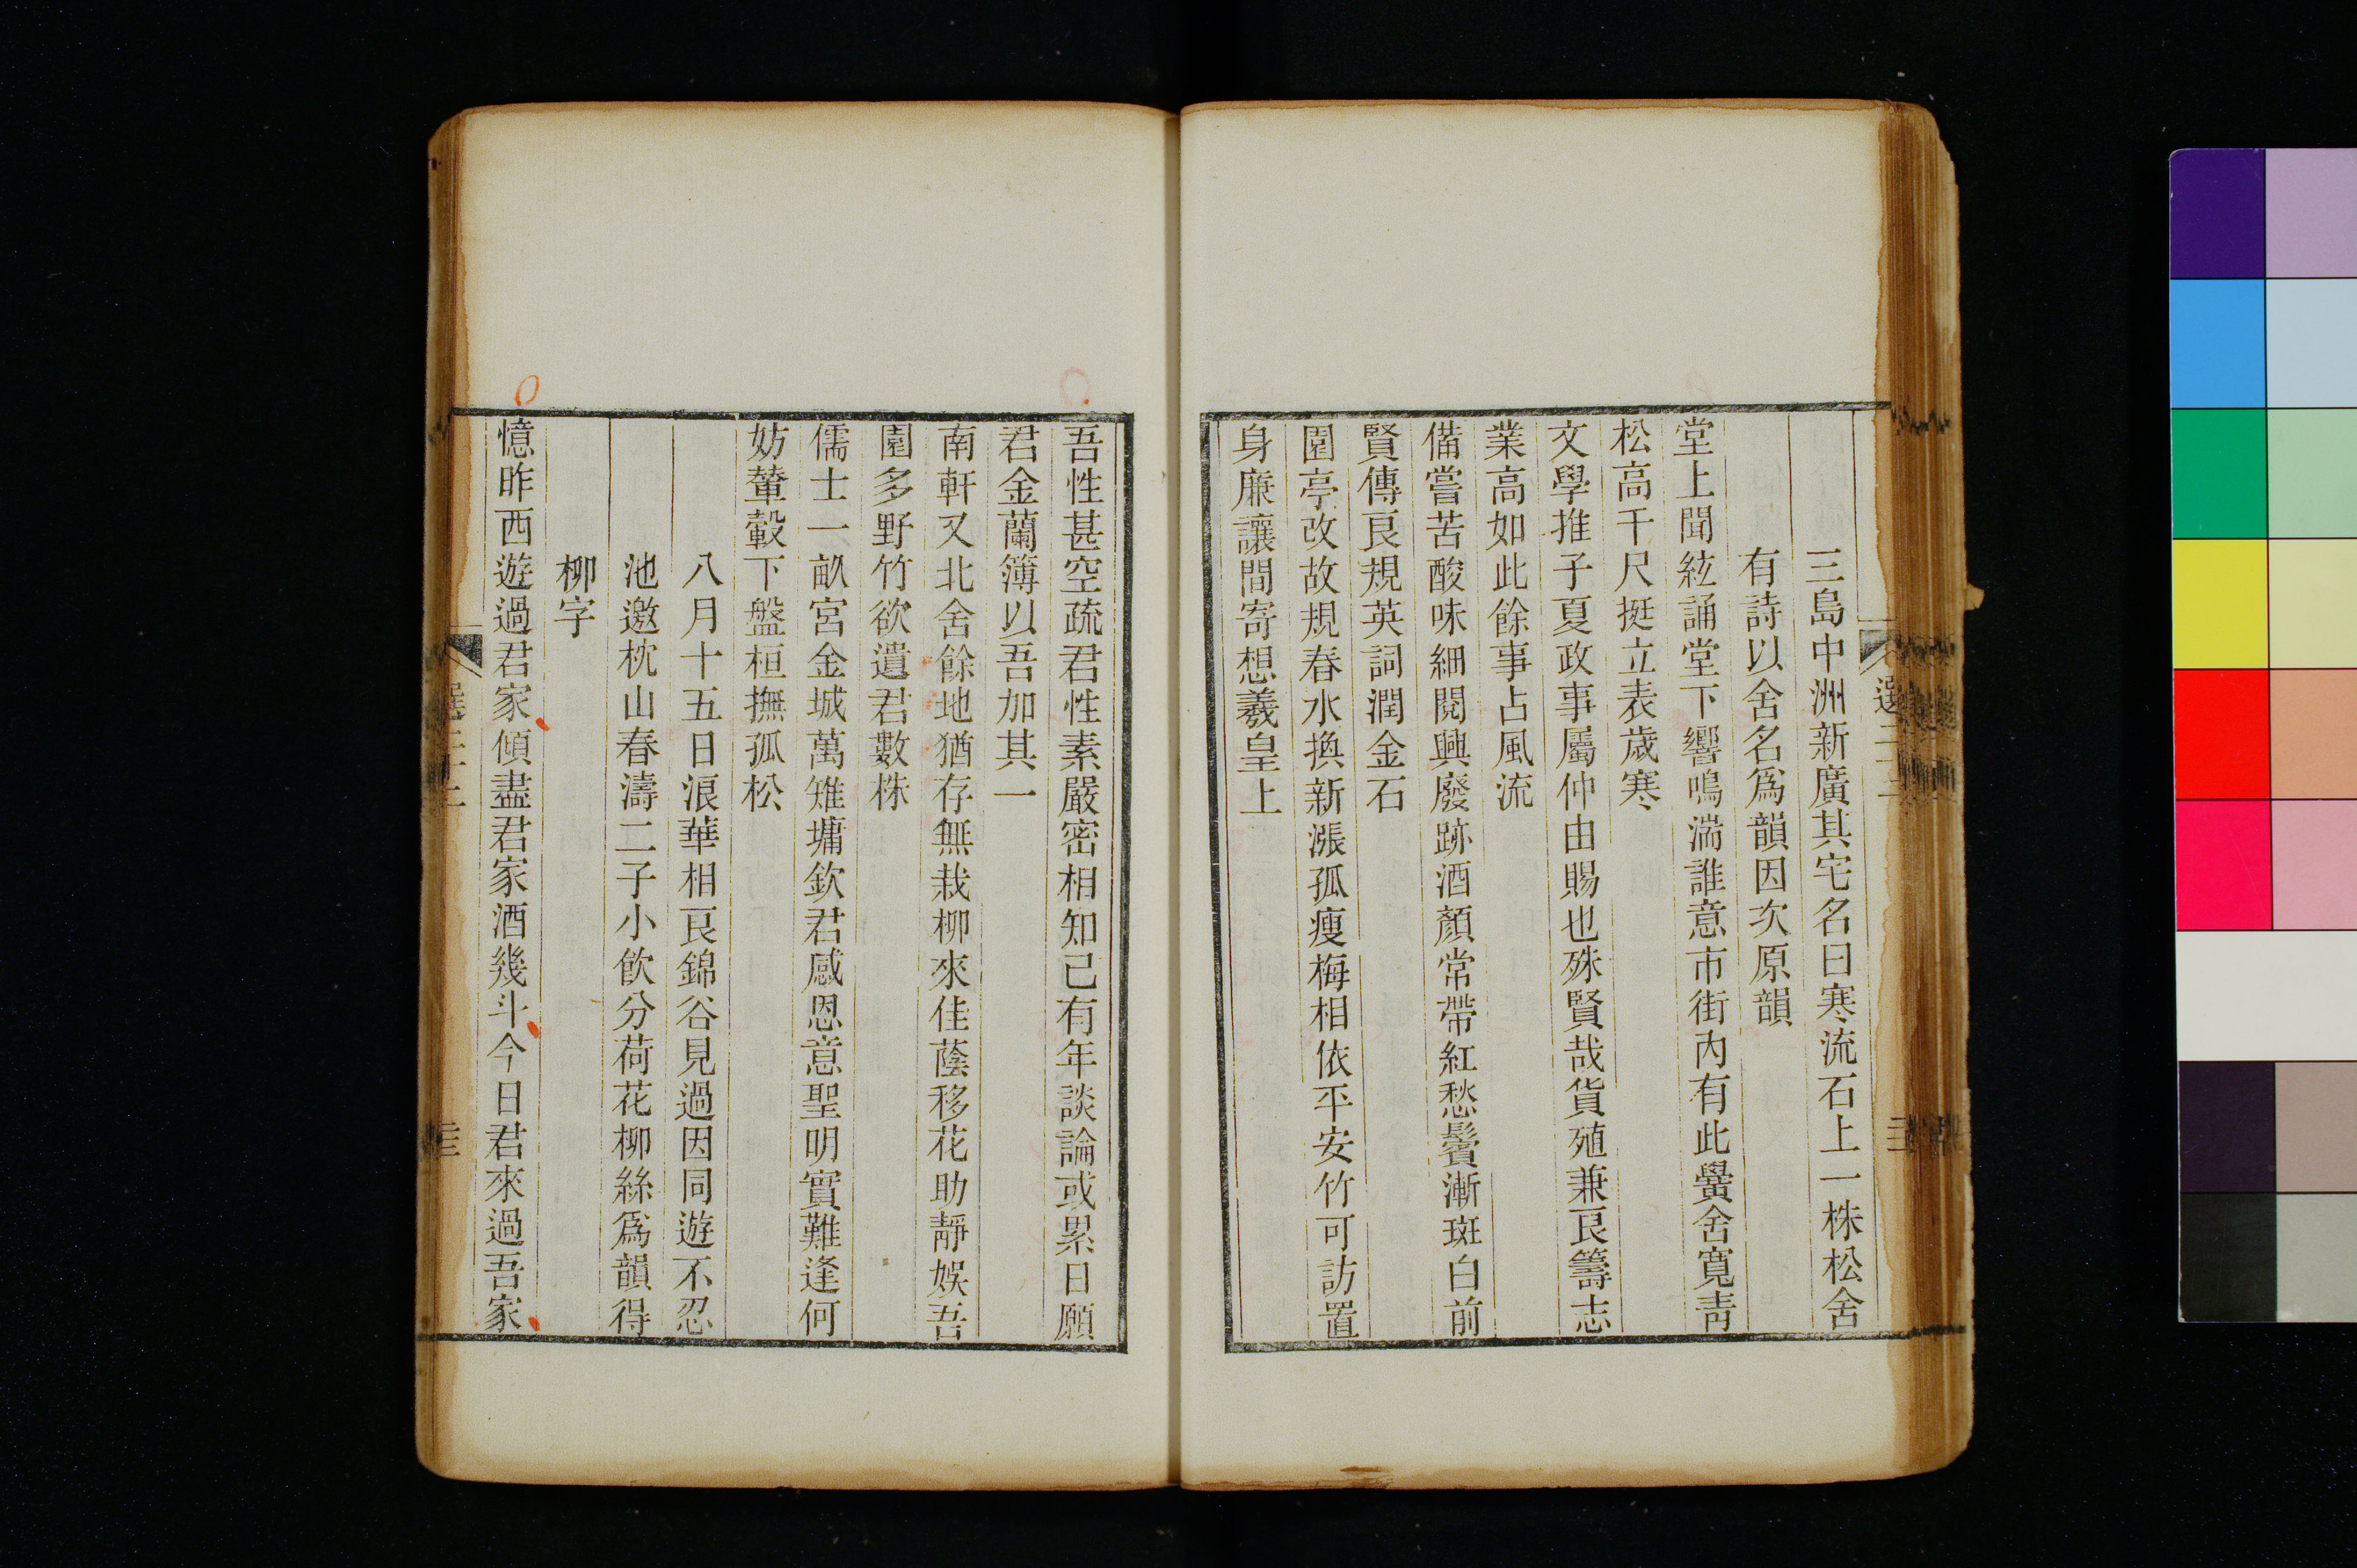 三島中洲新廣其宅名曰寒流石上一株松舍
有詩以舍名爲韻因次原韻
堂上聞絃誦堂下響鳴湍誰意市街內有此黌舍寬靑
松高千尺挺立表歲寒
文學推子夏政事屬仲由賜也殊賢哉貨殖兼良籌志
業高如此餘事占風流
備嘗苦酸味細閱興廢跡酒顏常帶紅愁鬢漸斑白前
賢傳良規英詞潤金石
園亭改故規春水換新漲孤瘦梅相依平安竹可訪置
身廉讓間寄想羲皇上
吾性甚空疏君性素嚴密相知已有年談論或累日願
君金蘭簿以吾加其一
南軒又北舍餘地猶存無栽柳來佳蔭移花助靜娛吾
園多野竹欲遺君數株
儒士一畝宮金城萬雉墉欽君感恩意聖明實難逢何
妨輦轂下盤桓撫孤松
八月十五日浪華相良錦谷見過因同遊不忍
池邀枕山春濤二子小飮分荷花柳絲爲韻得
柳字
憶昨西遊過君家傾盡君家酒幾斗今日君來過吾家